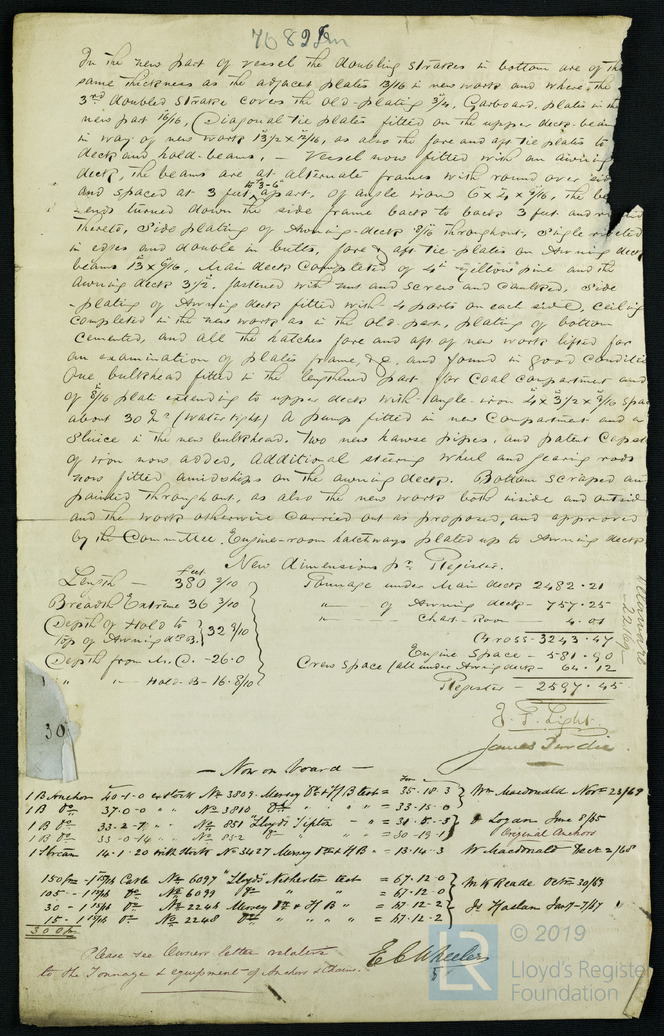 70825
In the new part of vessel the doubling strakes in bottom are of the
same thickness as the adjacent plates 13/16 in new work and where the
3rd doubled strake covers the old plating 3/4, Garboard plates in the
new part 16/16, Diagonal tie plates fitted on the upper deck beam
in way of new work 13 1/2 x 7/16, as also the fore and aft tie plates to
deck and hold-beams, — Vessel now fitted with an awning
deck, the beams are at alternate frames with round over side
and spaced at 3 feet 3-6 apart, of angle iron 6 x 4 x 7/16, the be
ends turned down the side frame back to back 3 feet and ri
thereto, side plating of Awning-deck 8/16 throughout, single riveted
in edges and double in butts, fore & aft tie plates on Awning deck
beams 13 x 9/16, Main deck completed of 4" yellow pine and the
awning deck 3 1/2, fastened with nut and screw and caulked, side
plating of Awning deck fitted with 4 ports on each side, Ceiling
completed in the new work as in the old part, plating of bottom
cemented, and all the hatches fore and aft of new work lifted for
an examination of plates frame, &c. and found in good conditi
One bulkhead fitted in the lengthened part for Coal compartment and
of 8/16 plate extending to upper deck with angle-iron 4 x 3 1/2 x 9/16 spac
about 30 Ins (water tight) A pump fitted in new Compartment and a
Sluice in the new bulkhead. Two new hawse pipes, and patent Capst
of iron now added, additional steering wheel and gearing rods
now fitted amidships on the awning deck. Bottom scraped and
painted throughout, as also the new work both inside and outside
and the work otherwise carried out as proposed, and approved
by the Committee. Engine-room hatchways plated up to Awning deck
New dimensions pr. Register.
feet
Length — 380 2/10
Breadth Extreme 36 3/10
Depth of Hold to
Top of Awning dk B. } 32 9/10
Depth from M.D. - 26.0
" " Hold B - 16.8/10
Tonnage under Main deck 2482.21
" — of Awning deck - 757.25
" — Chart-Room - 4.01
Gross - 3243.47
Engine Space - 581.90
Crew Space (all under Awning deck - 64.12
Register - 2597.45
J. T. Light.
James Purdie
30
— Now on board —
1 B Anchor 40-1-0 ex stock No 3809. Mersey Dk & H B test = 35.18.3
1 B Do 37-0-0 " " No 3810 Do " " " = 33-15-0
Wm Macdonald Novr 23/69
1 B Do 33-2-7 " " No 851 Lloyds Tipton " = 31.8.3
1 B Do 33-0-14 " " No 852 Do " = 30-19-1
J Logan June 8/65
Original Anchors
1 Stream 14-1-20 with stock No 3427 Mersey Dk & H B - 13.14.3
W Macdonald Decr 2/68
150 fm - 1 15/16 Cable No 6097 "Lloyds Netherton test = 67.12.0
105 - 1 15/16 Do No 6099 Do " " = 67.12.0
W H Reade Octr 30/69
30 - 1 15/16 Do No 2244 Mersey Dk & H B " = 67.12.2
15 - 1 15/16 Do No 2248 Do " " " " = 67.12.2
300 fm
Please see Owners letter relative
to the Tonnage & equipment of Anchors & Chains.
E C Wheeler
LR
© 2019
Lloyd's Register
Foundation